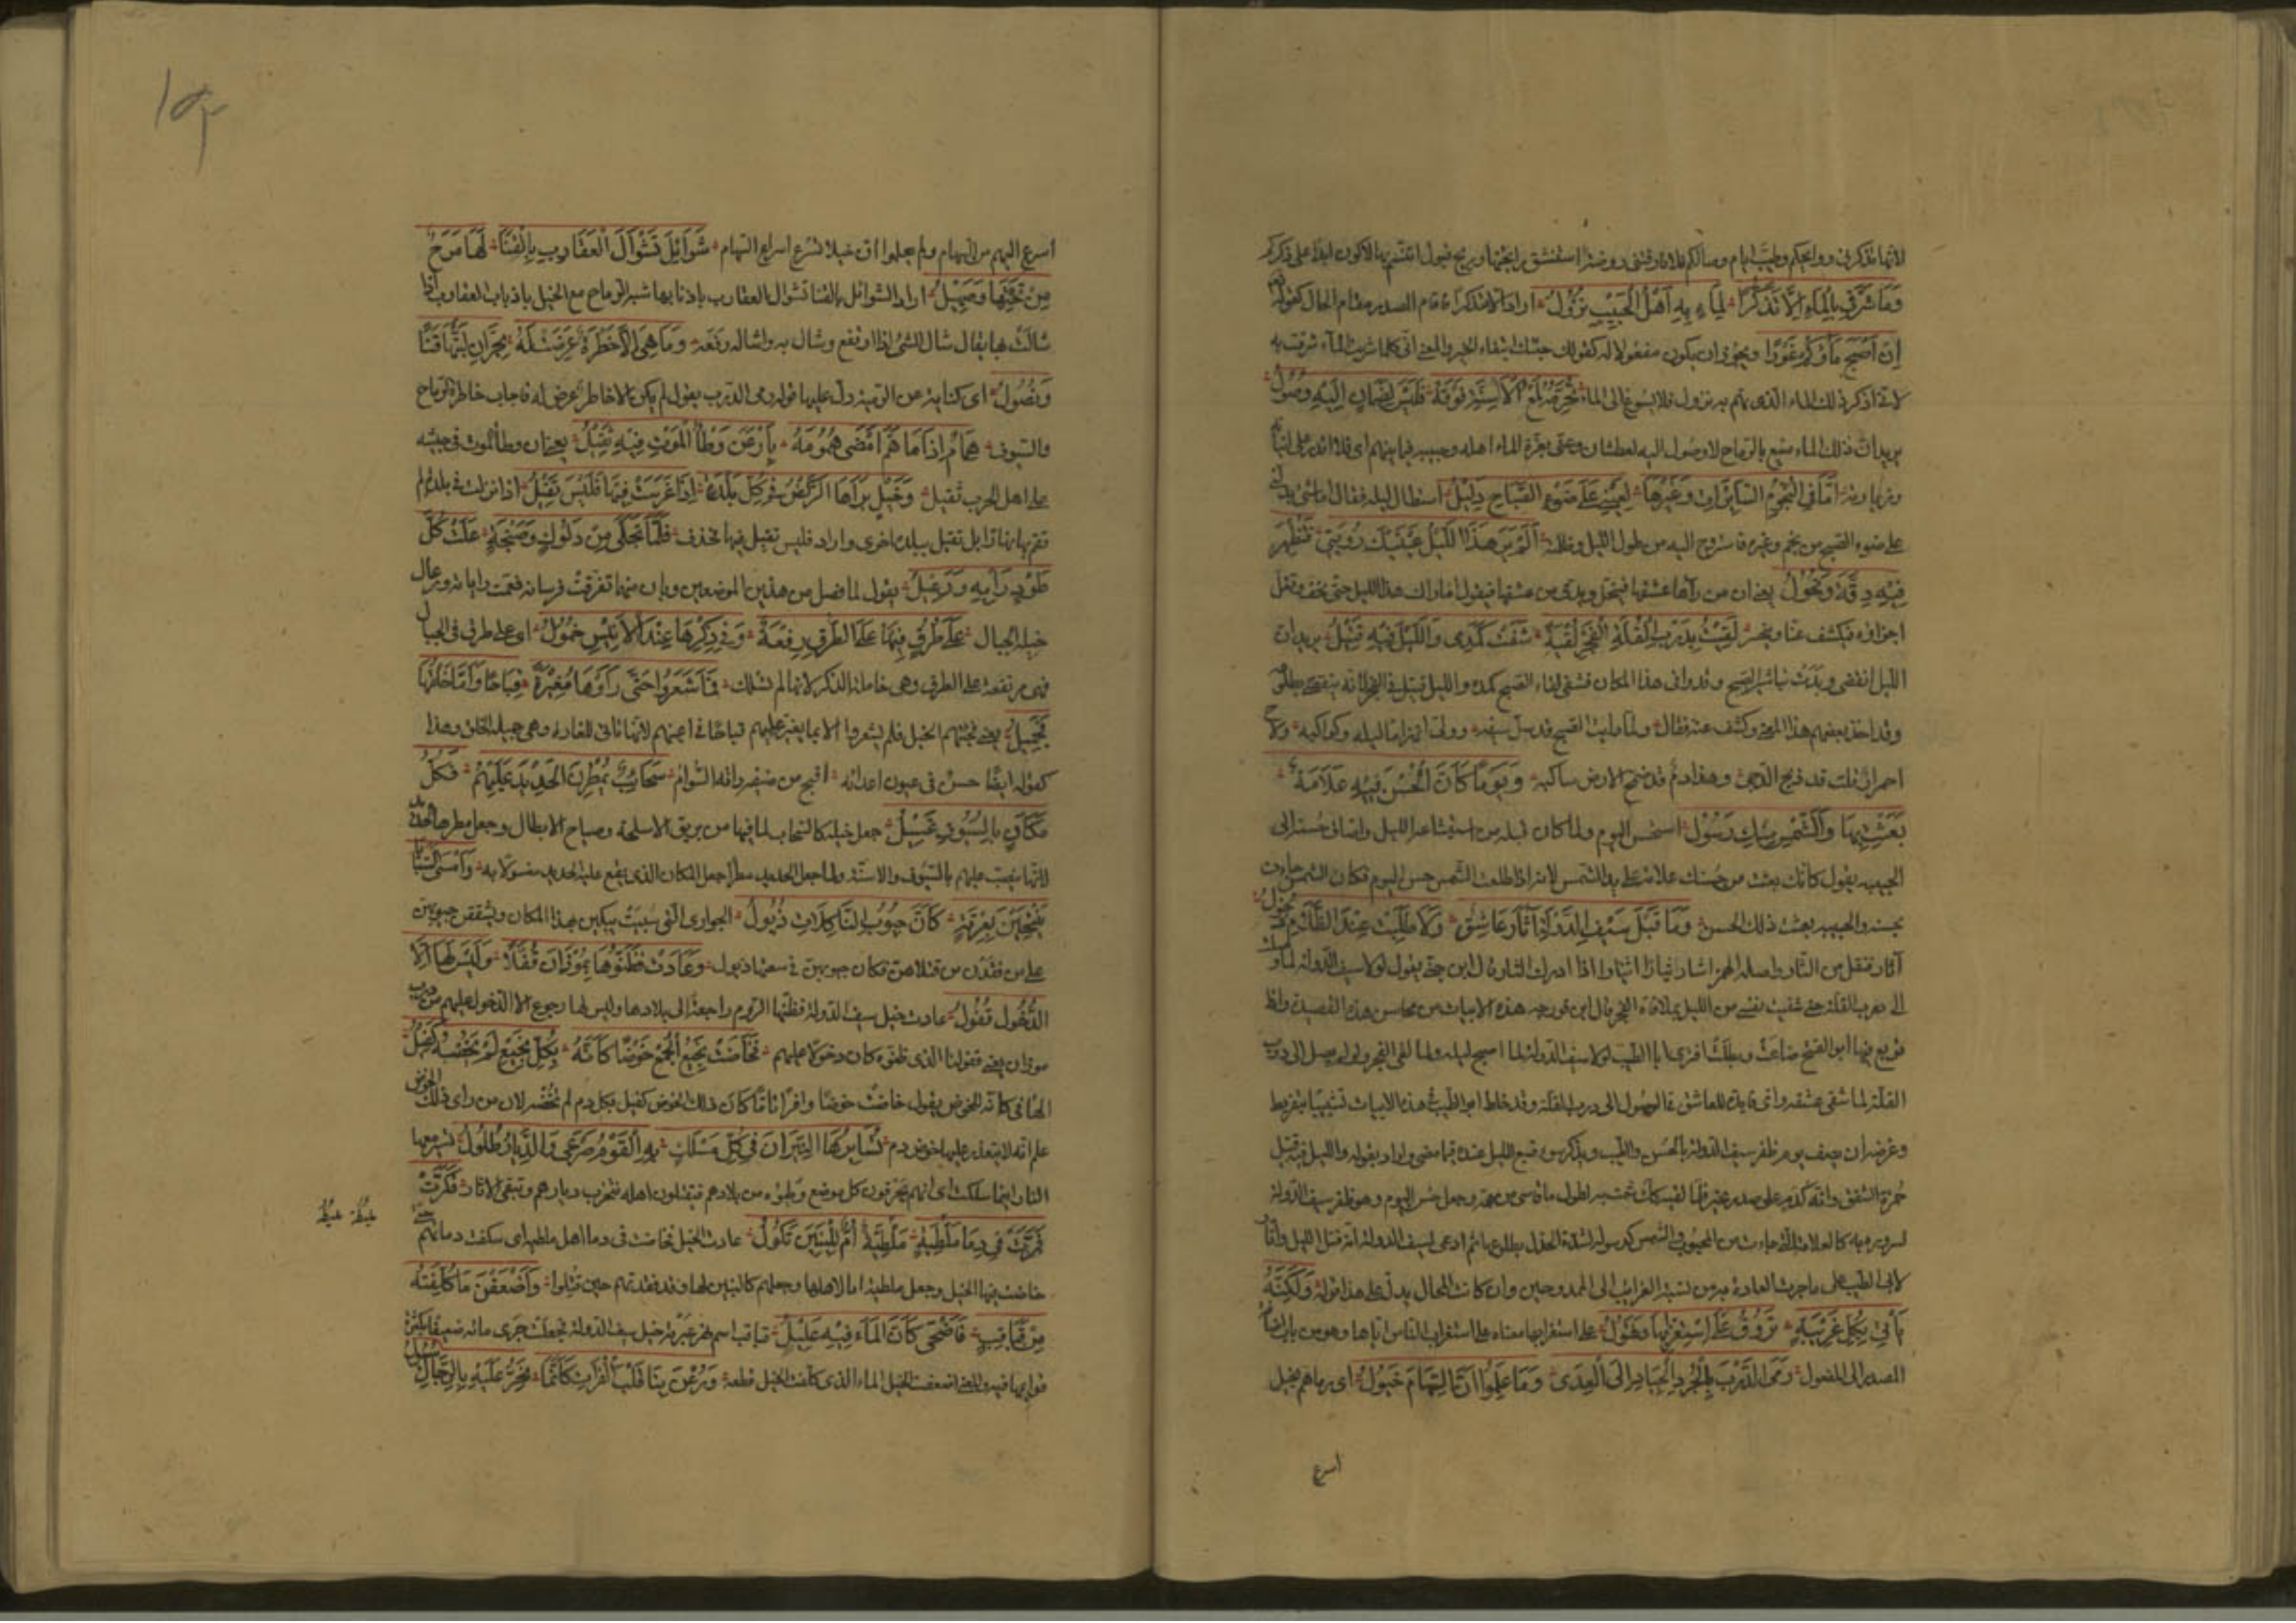 لانها تذكرنى روائحكم وطيب ايام وصالكم فلا فارقتنى روضة استنشق رائحتها وريح قبول انتسم بها لاكون ابدا على ذكركم
وَمَا شَرَقِى بِالْمَاءِ اِلَّا تَذَكُّرًا لِمَاءٍ بِهِ اَهْلُ الْحَبِيبِ نُزُولُ اراد الا متذكرا فاقام المصدر مقام الحال كقوله تعالى
اِنْ اَصْبَحَ مَاؤُكُمْ غَوْرًا ويجوز ان يكون مفعولا له كقولك جئتك ابتغاء الخير والمعنى انى كلما شربت الماء شرقت به
لانى اذكر ذلك الماء الذى هم به نزول فلا يسوغ لى الماء يُحَرِّمُهُ لَمْعُ الْاَسِنَّةِ فَوْقَهُ فَلَيْسَ لِظَمْآنٍ اِلَيْهِ وُصُولُ
يريد ان ذلك الماء منيع بالرماح لا وصول اليه لعطشان وعنى بعزة الماء اهله وحبيبه فيما بينهم اى فلا اقدر على اتيانه
وزيارته اَمَا فِى النُّجُومِ السَّائِرَاتِ وَغَيْرِهَا لِعَيْنِى عَلَى ضَوْءِ الصَّبَاحِ دَلِيلُ استطال ليله فقال اما شئ يدلنى
على ضوء الصبح من نجم وغيره فاستروح اليه من طول الليل وظلمته اَلَمْ يَرَ هٰذَا اللَّيْلُ عَيْنَيْكِ رُؤْيَتِى فَتَظْهَرَ
فِيهِ دِقَّةٌ وَنُحُولُ يعنى ان من رآها عشقها فينحل ويدق من عشقها فيقول اما راك هذا الليل حتى يخف وتقل
اجزاؤه فيكشف عنا وينحسر لَقِيتُ بِدَرْبِ الْقُلَّةِ الْفَجْرَ لَقْيَةً شَفَتْ كَمَدِى وَاللَّيْلُ فِيهِ قَتِيلُ يريد ان
الليل انقضى وبدت تباشير الصبح وقد وافى هذا المكان فشفى لقاء الصبح كمده والليل قتيل فى الفجر لانه ينقضى بطلوعه
وقد اخذ بعضهم هذا المعنى وكشف عنه فقال ولما رايت الصبح قد سل سيفه وولى انهزاما ليله وكواكبه ولاح
احمرار قلت قد ذبح الدجى وهذا دم قد ضمخ الارض ساكبه وَيَوْمًا كَاَنَّ الْحُسْنَ فِيهِ عَلَامَةٌ
بَعَثْتِ بِهَا وَالشَّمْسُ مِنْكِ رَسُولُ استحسن اليوم ولما كان قبله من استبشاعه الليل واضاف حسنه الى
الحبيبه يقول كانك بعثت من حسنك علامة على يد الشمس لانه اذا طلعت الشمس حسن اليوم فكان الشمس جاءت
بحسنه والحبيبه بعثت ذلك الحسن وَمَا قَبْلَ سَيْفِ الدَّوْلَةِ اثَّارَ عَاشِقٌ وَلَا طُلِبَتْ عِنْدَ الظَّلَامِ ذُحُولُ
آثار تفتعل من الثار واصله الهمز اثتار اثيتارا اذا ادرك الثار قال ابن جنى يقول لولا سيف الدولة لما وصلت
الى درب القلة حتى شفيت نفسى من الليل بملاقاة الفجر قال ابن فورجه هذه الابيات من محاسن هذه القصيدة واذا
توبع فيها ابو الفتح ضاعت وبطلت افترى ابا الطيب لولا سيف الدولة لما اصبح ليله ولما لقى الفجر ولو لم يصل الى درب
القلة لما شفى عشقه واى فايدة للعاشق فى الوصول الى درب القلة وقد خلط ابو الطيب فى هذه الابيات تشبيبا بتقريظ
وغرضه ان يصف يوم ظفر سيف الدولة بالحسن والطيب ويذكر سوء صنع الليل عنده فيما مضى واراد بقوله والليل فيه قتيل
حمرة الشفق وانه كدم على صدر نحير فلما لقيه كان شمت به لطول ما قاسى من همه وجعل حسن اليوم وهو ظفر سيف الدولة
لسروره به كالعلامة التى جاءت من المحبوب والشمس كرسوله لشدة الحفل بطلوعها ثم ادعى لسيف الدولة انه قتل الليل واثار
لابى الطيب على ما جرت العادة به من نسبة الغرائب الى الممدوحين وان كانت المحال يدل على هذا قوله وَلٰكِنَّهُ
يَأْتِى بِكُلِّ غَرِيبَةٍ تَرُوقُ عَلَى اسْتِغْرَابِهَا وَتَهُولُ على استغرابها معناه على استغراب الناس اياها وهو من باب اضافة
المصدر الى المفعول رَمَى الدَّرْبَ بِالْجُرْدِ الْجِيَادِ اِلَى الْعِدَى وَمَا عَلِمُوا اَنَّ السِّهَامَ خُيُولُ اى رماهم بخيل
اسرع
اسرع اليهم من السهام ولم يعلموا ان خيلا تسرع اسراع السهام شَوَائِلَ تَشْوَالَ الْعَقَارِبِ بِالْقَنَا لَهَا مَرَحٌ
مِنْ تَحْتِهَا وَصَهِيلُ اراد الشوائل بالقنا تشوال العقارب باذنابها شبه الرماح مع الخيل باذناب العقارب اذا
شالت بها يقال شال الشئ اذا ارتفع وشال به واشاله رفعه وَمَا هِىَ اِلَّا خَطْرَةٌ عَرَضَتْ لَهُ بِحَرَّانَ لَبَّتْهَا قَنًا
وَنُصُولُ اى كناية عن الرمية دل عليها قوله رمى الدرب يقول لم يكن الا خاطر عرض له فاجاب خاطره الرماح
والسيوف هُمَامٌ اِذَا مَا هَمَّ اَمْضَى هُمُومَهُ بِاَرْعَنَ وَطْأُ الْمَوْتِ فِيهِ ثَقِيلُ يعنى ان وطأ الموت فى جيشه
على اهل الحرب ثقيل وَخَيْلٍ بَرَاهَا الرَّكْضُ فِى كُلِّ بَلْدَةٍ اِذَا عَرَّسَتْ فِيهَا فَلَيْسَ تَقِيلُ اذا نزلت فى بلدة لم
تقم بها نهارا بل تقيل ببلدة اخرى واراد فليس تقيل فيها فحذف فَلَمَّا تَجَلَّى مِنْ دَلُوكٍ وَصَنْجَةٍ عَلَتْ كُلَّ
طَوْدٍ رَايَةٌ وَرَعِيلُ يقول لما فصل من هذين الموضعين وبان منهما تفرقت فرسانه فعمت راياته ورعال
خيله الجبال عَلَى طُرُقٍ فِيهَا عَلَى الطُّرْقِ رِفْعَةٌ وَفِى ذِكْرِهَا عِنْدَ الْاَنِيسِ خُمُولُ اى على طرق فى الجبال
فهى مرتفعة على الطرق وهى خاملة الذكر لانها لم تسلك فَمَا شَعَرُوا حَتَّى رَاَوْهَا مُغِيرَةً قِبَاحًا وَاَمَّا خَلْقُهَا
فَجَمِيلُ يعنى فجئتهم الخيل فلم يشعروا الا بها يغير عليهم قباحا فى اعينهم لانها تاتى للغارة وهى جميلة الخلق وهذا
كقوله ايضا حسن فى عيون اعدائه اقبح من ضيفه رأته السوام سَحَائِبُ يُمْطِرْنَ الْحَدِيدَ عَلَيْهِمُ فَكُلُّ
مَكَانٍ بِالسُّيُوفِ غَسِيلُ جعل خيله كالسحاب لما فيها من بريق الاسلحة وصياح الابطال وجعل مطرها الحديد
لانها تنصب عليهم بالسيوف والاسنة ولما جعل الحديد مطرا جعل المكان الذى يقع عليه الحديد مغسولا به وَاَمْسَى السَّبَايَا
يَنْتَحِبْنَ بِعِرْقَةٍ كَاَنَّ جُيُوبَ الثَّاكِلَاتِ ذُيُولُ الجوارى التى سبيت يبكين بهذا المكان ويشققن جيوبهن
على من فقدن من قتلاهن فكان جيوبهن فى سعتها ذيول وَعَادَتْ فَظَنُّوهَا بِمَوْزَارَ قُفَّلًا وَلَيْسَ لَهَا اِلَّا
الدُّخُولَ قُفُولُ عادت خيل سيف الدولة فظنها الروم راجعة الى بلادها وليس لها رجوع الا الدخول عليهم من درب
موزار يعنى قفولها الذى ظنوه كان دخولا عليهم فَخَاضَتْ نَجِيعَ الْجَمْعِ خَوْضًا كَاَنَّهُ بِكُلِّ نَجِيعٍ لَمْ تَخُضْهُ كَفِيلُ
الهاء فى كانه للخوض يقول خاضت خوضا وافرا تاما كان ذلك الخوض كفيل بكل دم لم تخضه لان من راى ذلك الخوض
علم انه لا يتعذر عليها خوض دم تُسَايِرُهَا النِّيرَانُ فِى كُلِّ مَسْلَكٍ بِهِ الْقَوْمُ صَرْعَى وَالدِّيَارُ طُلُولُ تسير معها
النار اينما سلكت اى انهم يحرقون كل موضع وطئوه من بلادهم فيقتلون اهله فتخرب ديارهم وتبقى الاثار فَكَرَّتْ
فَمَرَّتْ فِى دِمَا مَلَطْيَةٍ مَلَطْيَةُ اُمٌّ لِلْبَنِينَ ثَكُولُ عادت الخيل فخاضت فى دماء اهل ملطية اى سكفت دمائهم حتى
خاضت فيها الخيل وجعل ملطية اما لاهلها وجعلهم كالبنين لها وقد فقدتهم حين قتلوا وَاَضْعَفْنَ مَا كُلِّفْنَهُ
مِنْ قُبَاقِبٍ فَاَضْحَى كَاَنَّ الْمَاءَ فِيهِ عَلِيلُ قباقب اسم نهر عبرته خيل سيف الدولة فجعلت جرى مائه ضعيفا بكثرة
قوايمها فيه والمعنى اضعفت الخيل الماء الذى كلفت الخيل قطعه وَرُعْنَ بِنَا قَلْبَ الْفُرَاتِ كَاَنَّمَا تَخِرُّ عَلَيْهِ بِالرِّجَالِ سُيُولُ